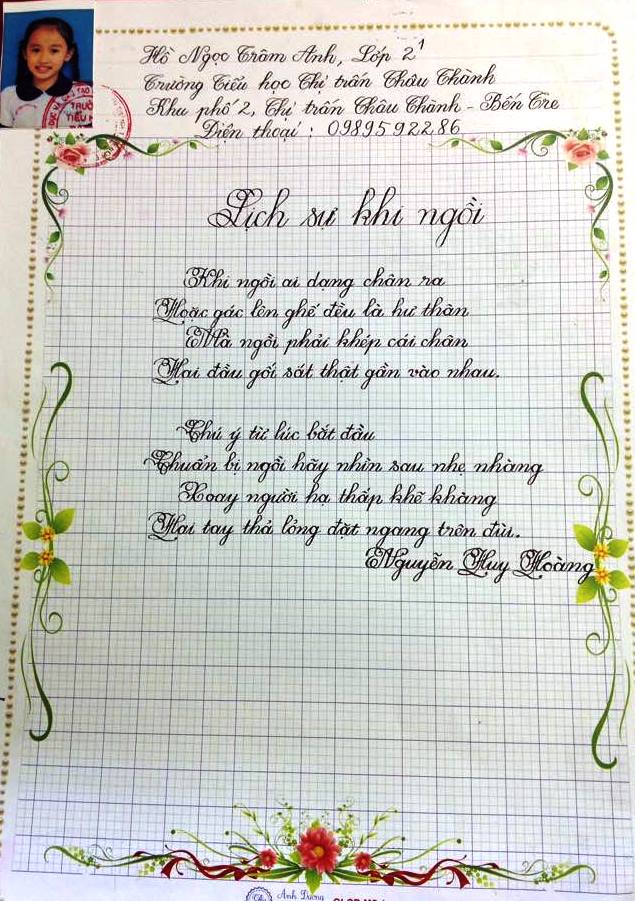 Hồ Ngọc Trâm Anh, Lớp 2¹
Trường Tiểu học Thị trấn Châu Thành
Khu phố 2, Thị trấn Châu Thành - Bến Tre
Điện thoại : 0989592286
TRƯỜ
TIỂU H
Lịch sự khi ngồi
Khi ngồi ai dạng chân ra
Hoặc gác lên ghế đều là hư thân
Mà ngồi phải khép cái chân
Hai đầu gối sát thật gần vào nhau.
Chú ý từ lúc bắt đầu
Chuẩn bị ngồi hãy nhìn sau nhẹ nhàng
Xoay người hạ thấp khẽ khàng
Hai tay thả lỏng đặt ngang trên đùi.
Nguyễn Huy Hoàng
Anh Dương